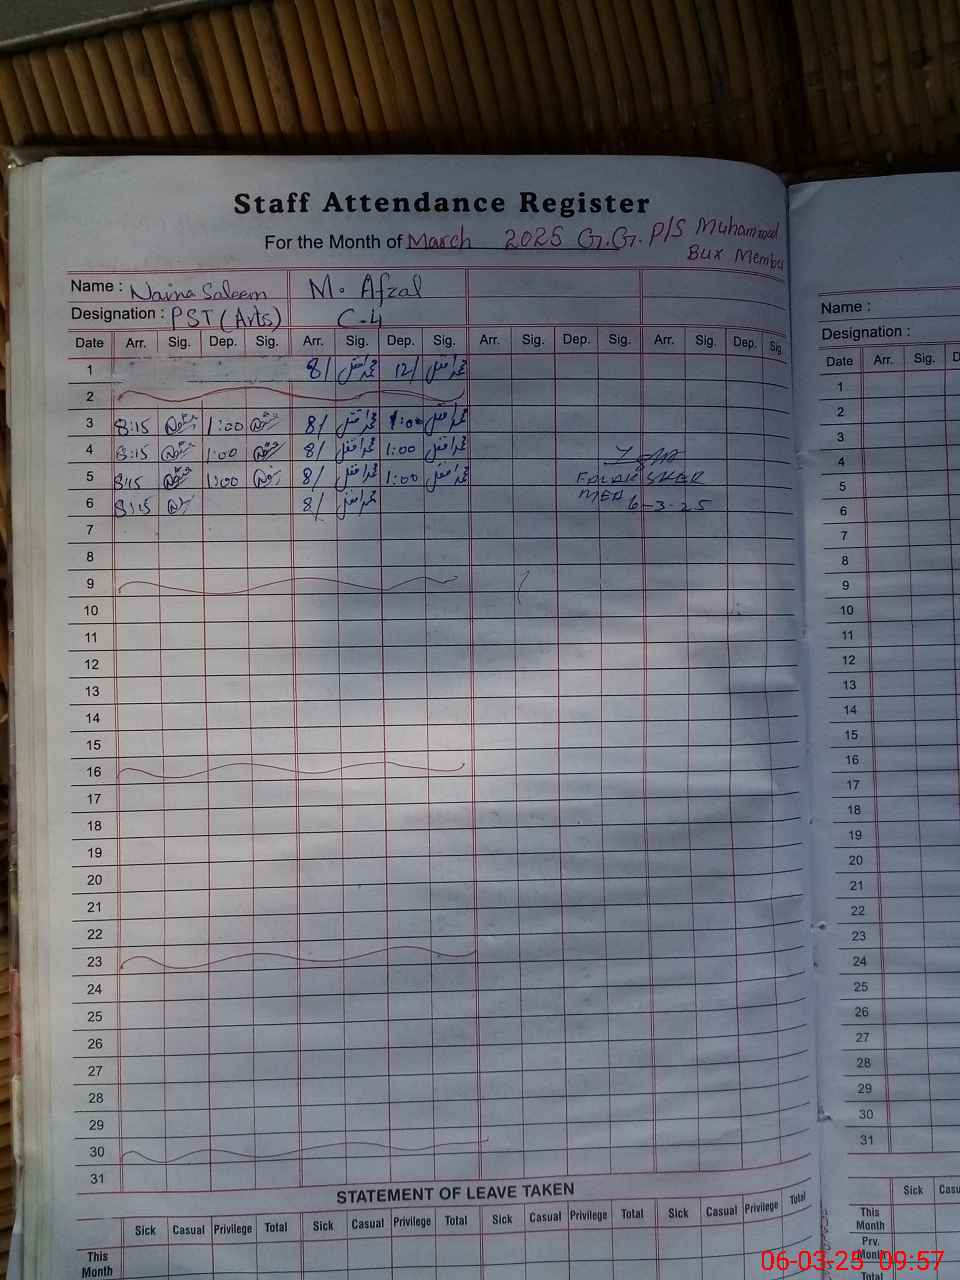 Staff Attendance Register
For the Month of March 2025 G.G. P/S Muhammad
Bux Member
Name : Naina Saleem M. Afzal
Designation : PST (Arts) C-4
Date Arr. Sig. Dep. Sig. Arr. Sig. Dep. Sig. Arr. Sig. Dep. Sig. Arr. Sig. Dep. Sig.
1 8/ محمد افضل 12/ محمد افضل
2
3 8:15 1:00 8/ محمد افضل 1:00 محمد افضل
4 8:15 1:00 8/ محمد افضل 1:00 محمد افضل
5 8:15 1:00 8/ محمد افضل 1:00 محمد افضل
6 8:15 8/ محمد افضل
MEA 6-3-25
7
8
9
10
11
12
13
14
15
16
17
18
19
20
21
22
23
24
25
26
27
28
29
30
31
STATEMENT OF LEAVE TAKEN
Sick Casual Privilege Total Sick Casual Privilege Total Sick Casual Privilege Total Sick Casual Privilege Total
This
Month
Name :
Designation :
Date Arr. Sig. D
1
2
3
4
5
6
7
8
9
10
11
12
13
14
15
16
17
18
19
20
21
22
23
24
25
26
27
28
29
30
31
Sick Casu
This
Month
Prv.
Month
Total
06-03-25 09:57